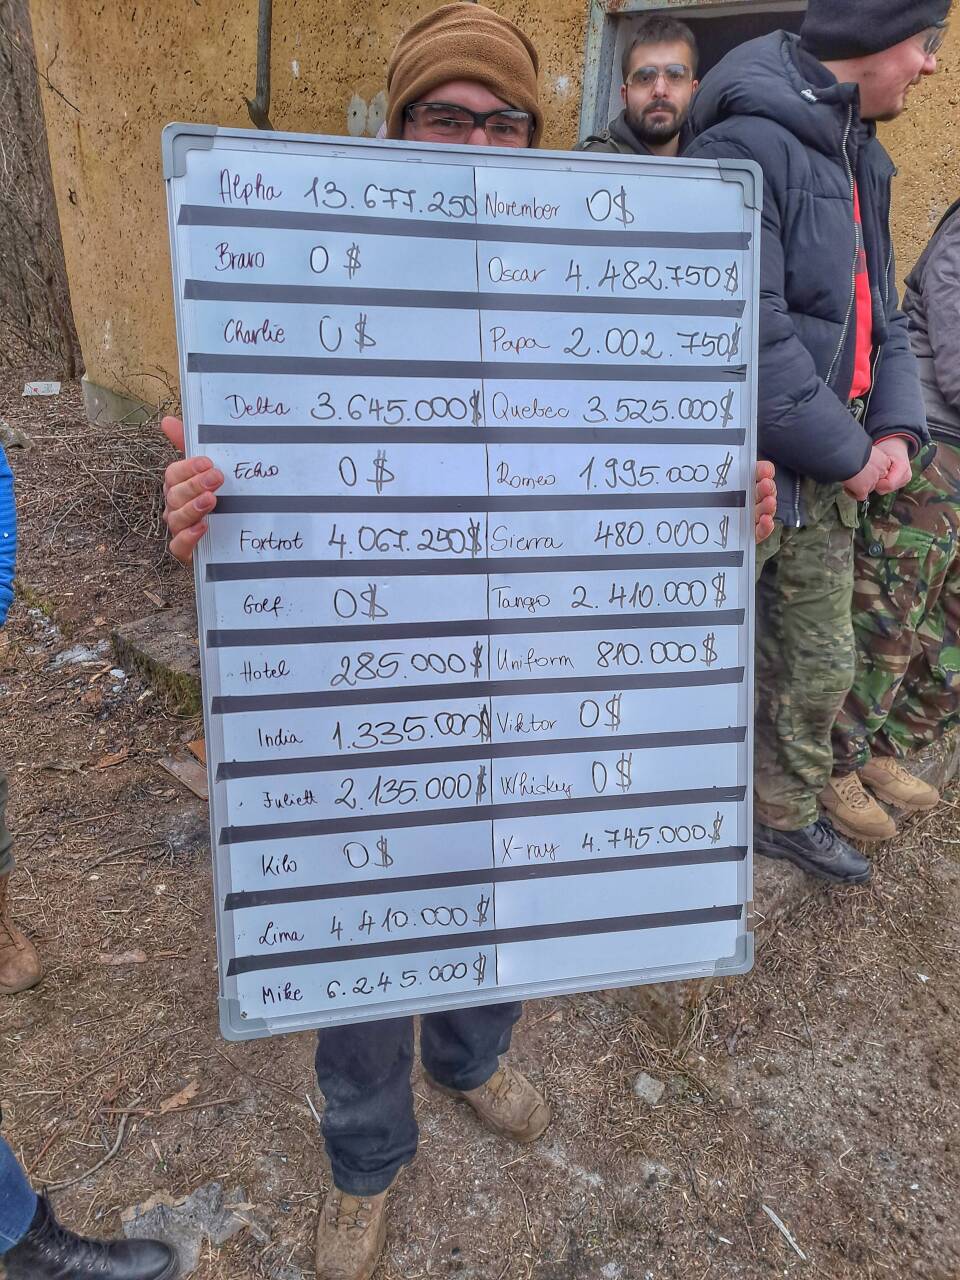 Alpha 13.677.250
Bravo 0$
Charlie 0$
Delta 3.645.000$
Echo 0$
Foxtrot 4.067.250$
Golf 0$
Hotel 285.000$
India 1.335.000$
Juliett 2.135.000$
Kilo 0$
Lima 4.410.000$
Mike 6.245.000$
November 0$
Oscar 4.482.750$
Papa 2.002.750$
Quebec 3.525.000$
Romeo 1.995.000$
Sierra 480.000$
Tango 2.410.000$
Uniform 810.000$
Viktor 0$
Whiskey 0$
X-ray 4.745.000$